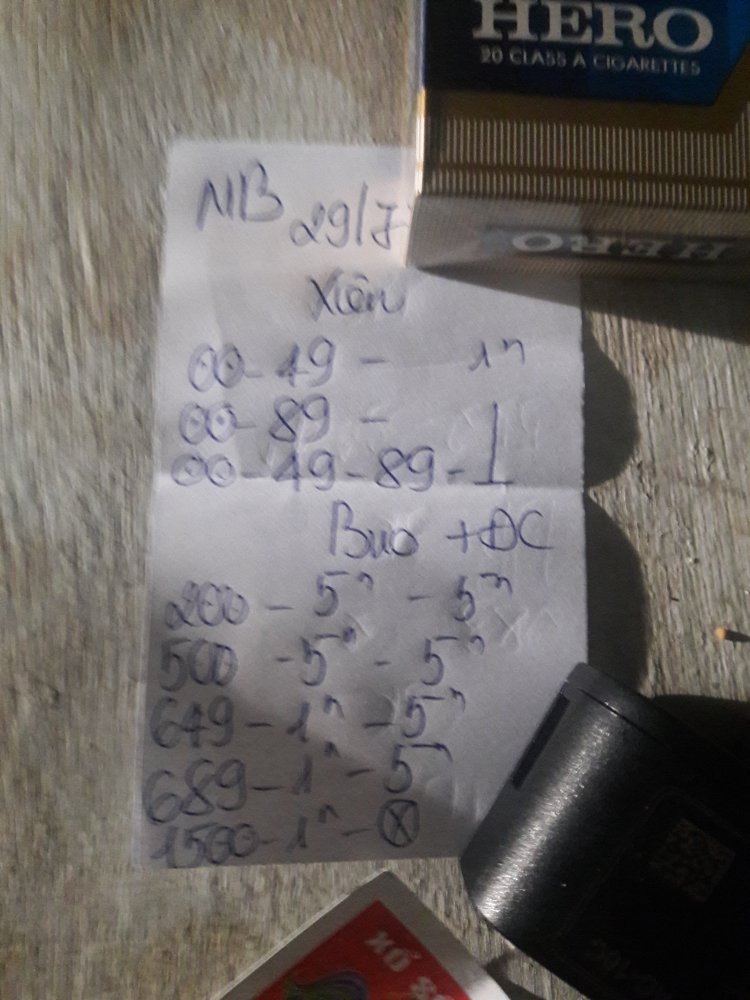 HERO
20 CLASS A CIGARETTES
HERO
MB 29/7
Xiên
00-49 - 1n
00-89 -
00-49-89-1
Bao +ĐC
200 - 5n - 5n
500 - 5n - 5n
649 - 1n - 5n
689 - 1n - 5n
1500 - 1n - ⓧ
XỔ SỐ